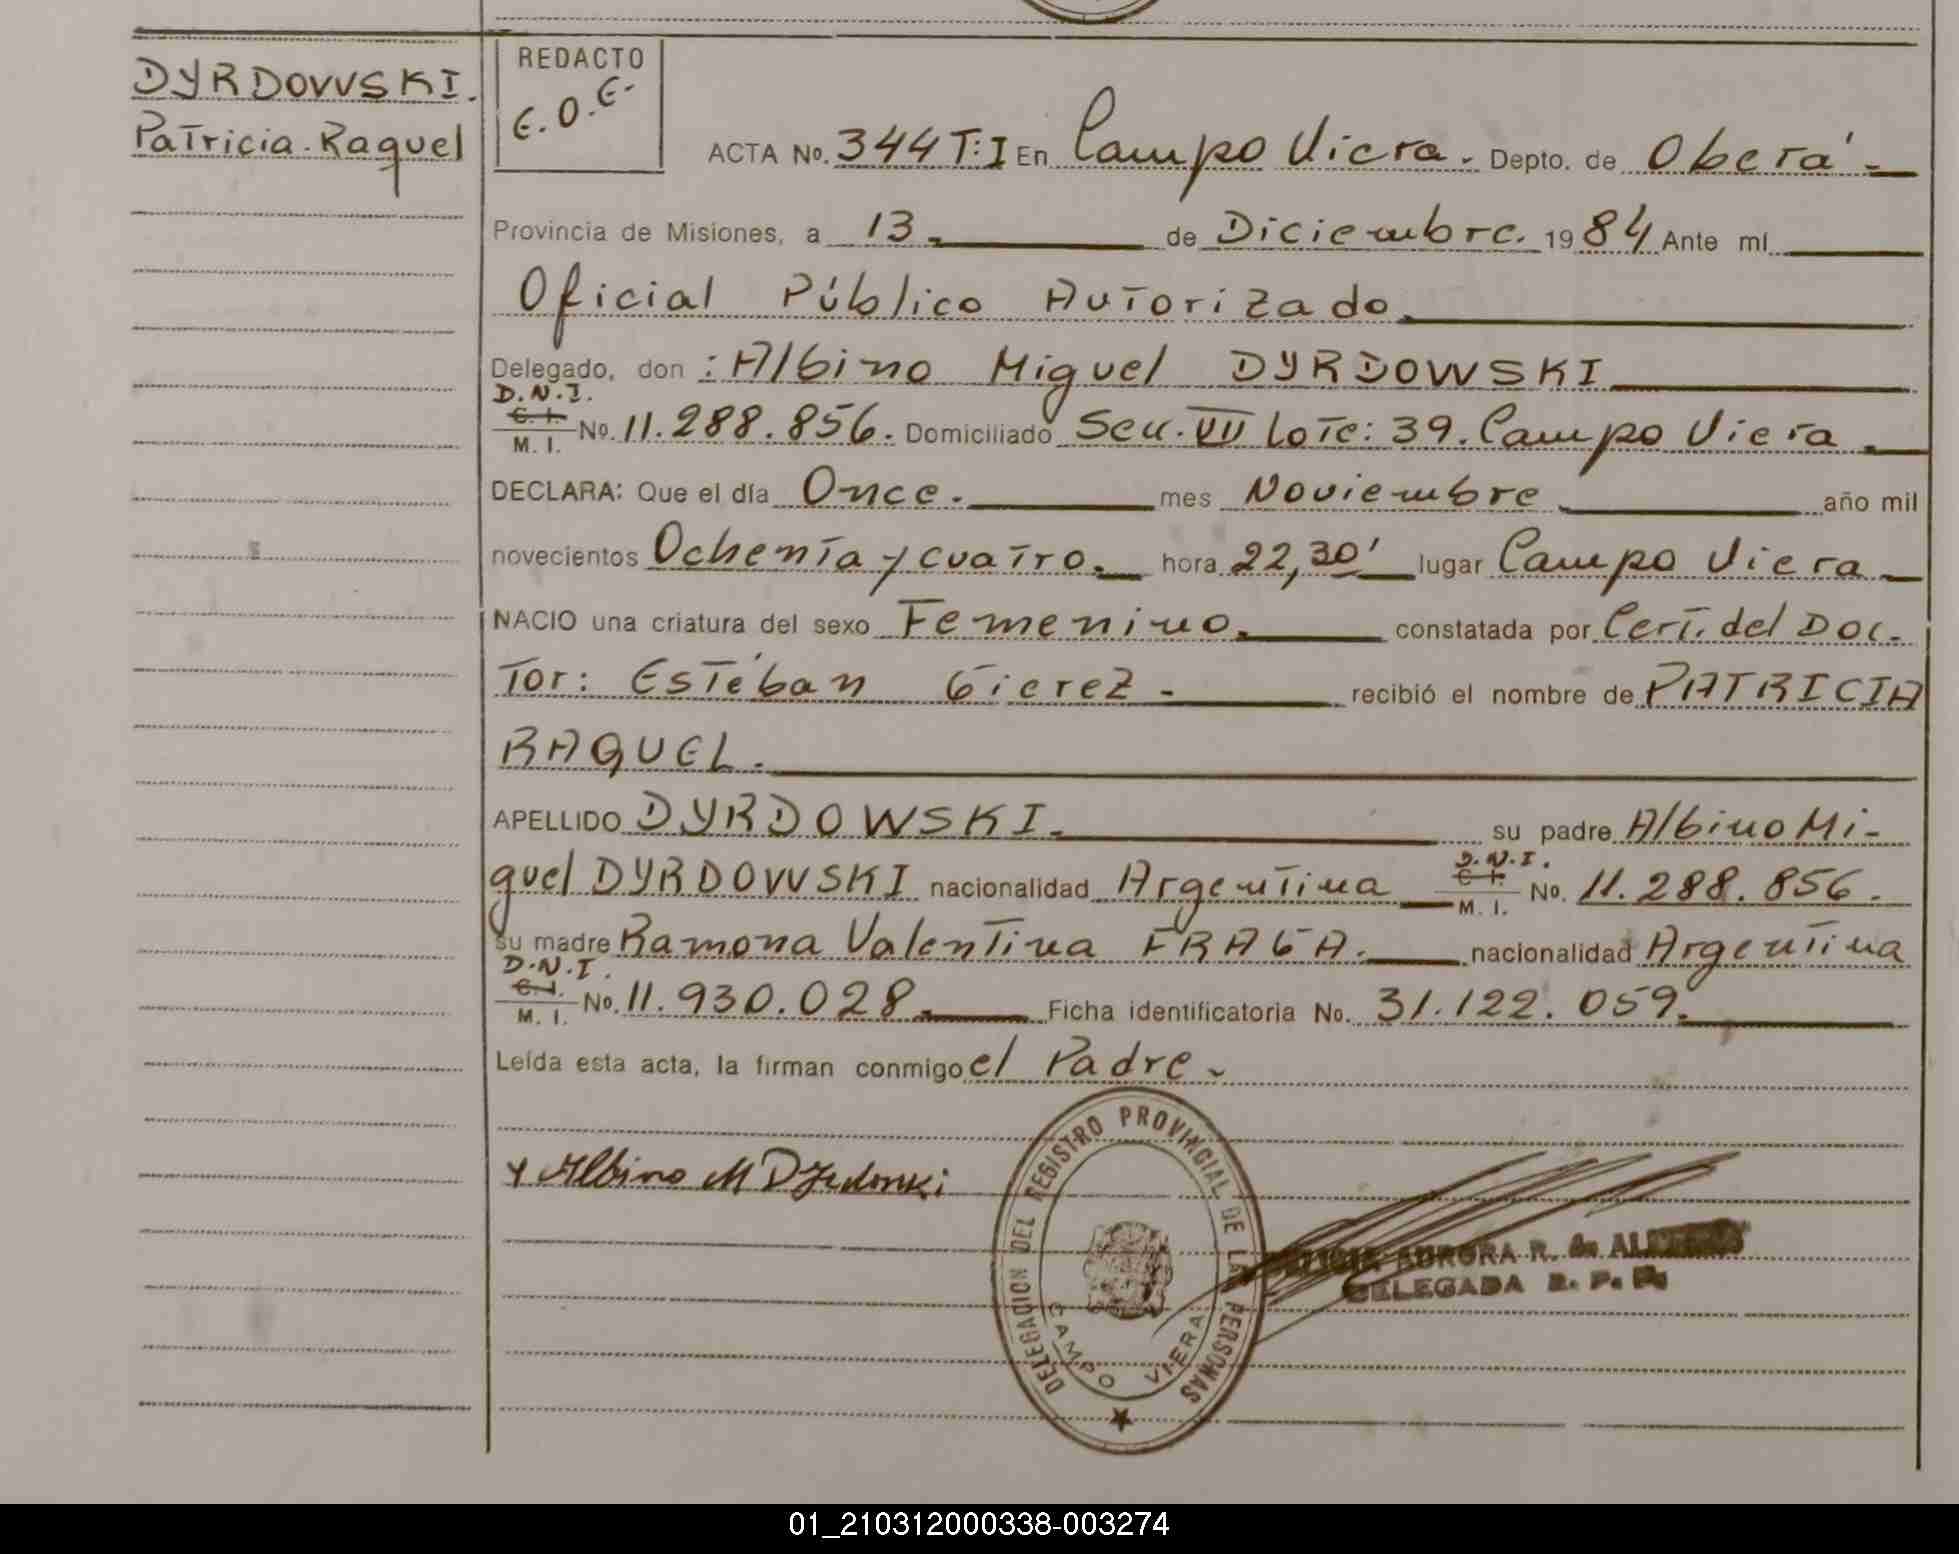 DYRDOWSKI.
Patricia. Raquel
REDACTO
E.O.E.
ACTA No. 344 T:I En Campo Viera. Depto. de Oberá.
Provincia de Misiones, a 13. de Diciembre. 1984 Ante mí
Oficial Público Autorizado.
Delegado, don : Albino Miguel DYRDOWSKI
D.N.I.
C. I.
M. I. No. 11.288.856. Domiciliado Secc. VII Lote: 39. Campo Viera.
DECLARA: Que el día Once. mes Noviembre año mil
novecientos Ochenta y cuatro. hora 22,30' lugar Campo Viera
NACIO una criatura del sexo Femenino. constatada por Cert. del Doc-
tor: Estéban Gierez - recibió el nombre de PATRICIA
RAQUEL.
APELLIDO DYRDOWSKI. su padre Albino Mi-
guel DYRDOWSKI nacionalidad Argentina D.N.I. C. I. M. I. No. 11.288.856.
su madre Ramona Valentina FRAGA. nacionalidad Argentina
D.N.I.
C. I.
M. I. No. 11.930.028. Ficha identificatoria No. 31.122.059.
Leída esta acta, la firman conmigo el Padre.
Albino M Dyrdowski
DELEGACION DEL REGISTRO PROVINCIAL DE LAS PERSONAS
CAMPO VIERA
AURORA R. de
DELEGADA R. P. P.
01_210312000338-003274